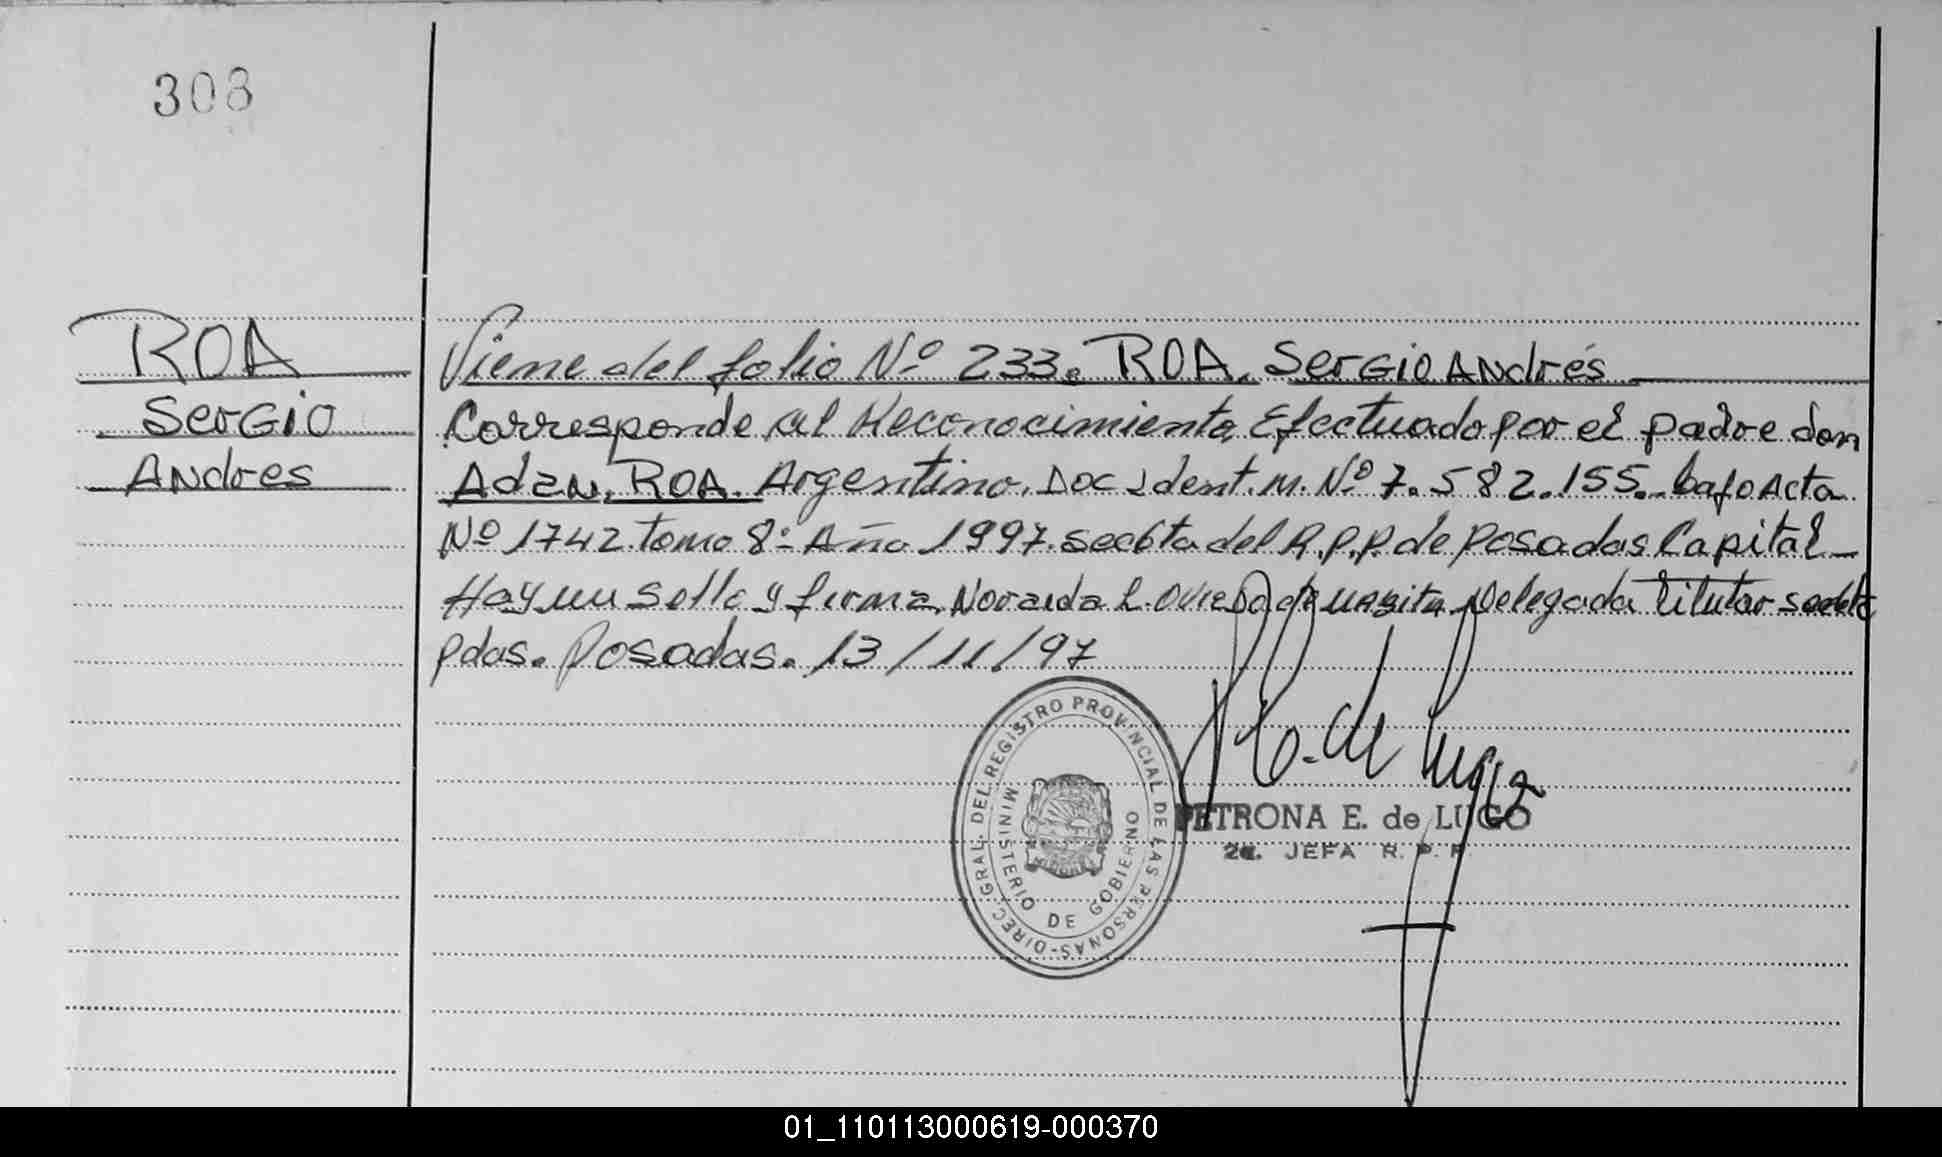 308
ROA
Sergio
Andres
Viene del folio Nº 233. ROA, Sergio Andrés
Corresponde al Reconocimiento Efectuado por el padre don
Adan, ROA. Argentino, Doc Ident. M. Nº 7.582.155. bajo Acta
Nº 1742 tomo 8º Año 1997 sec 6ta del R.P.P. de Posadas Capital
Hay un Sello y firma, L. de Delegada Titular
Pdas. Posadas. 13/11/97
DIREC. GRAL. DEL REGISTRO PROVINCIAL DE LAS PERSONAS
MINISTERIO DE GOBIERNO
P. E. de Lugo
PETRONA E. de LUGO
2a. JEFA R. P. P.
01_110113000619-000370